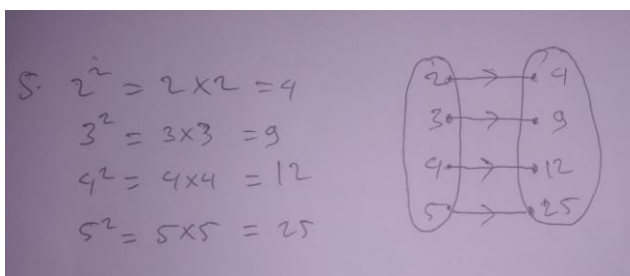 5. 2² = 2×2 = 4
3² = 3×3 = 9
4² = 4×4 = 12
5² = 5×5 = 25
2 → 4
3 → 9
4 → 12
5 → 25